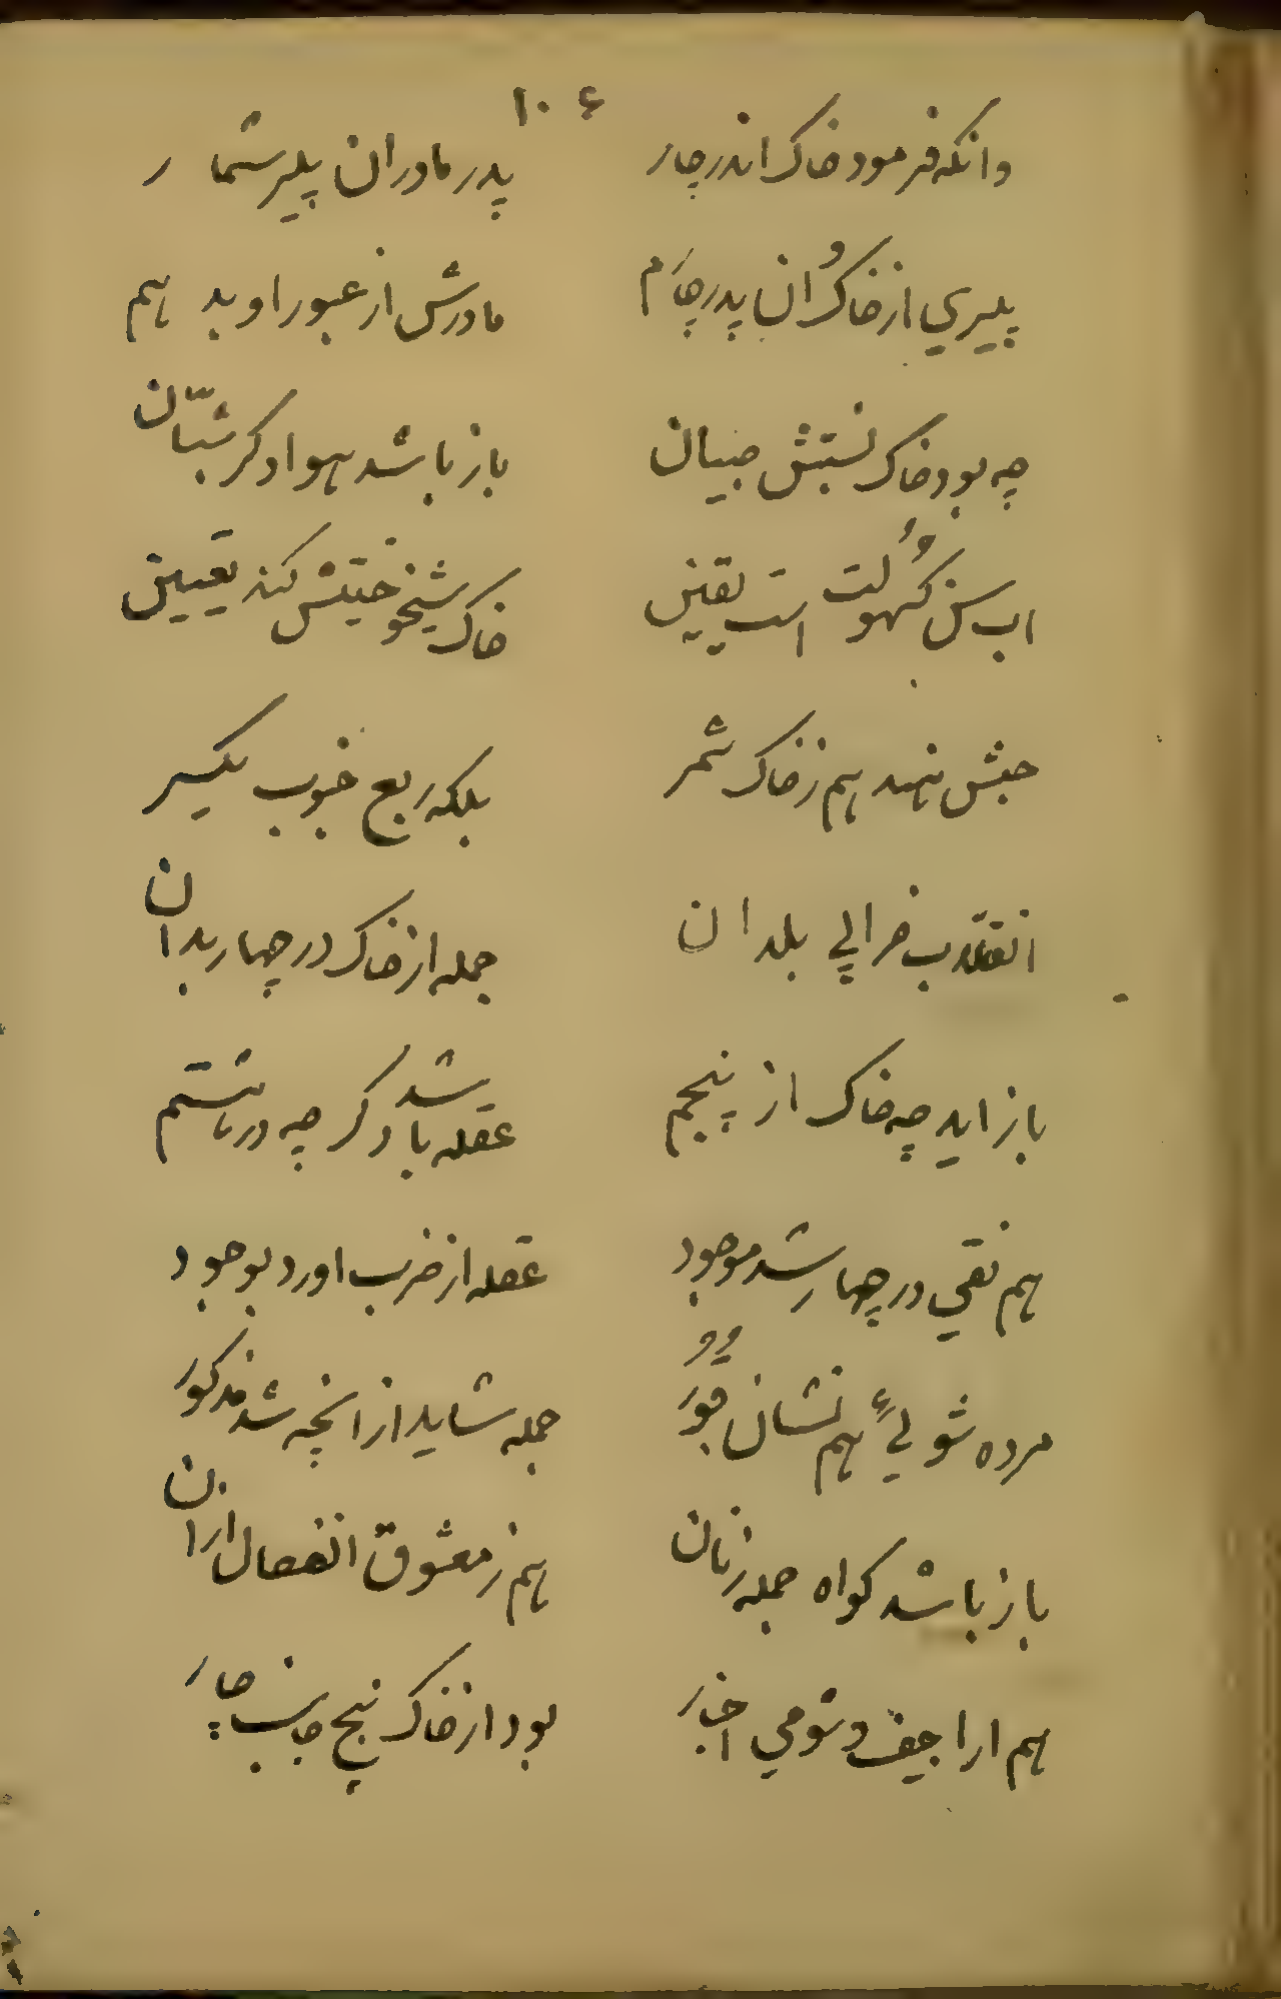 ۱۰۶
وانکه فرمود خاک اندر چار پدر مادران پیر شمار
پیری از خاک وان پدر چارم مادرش از عبور او بد هم
چه بود خاک نسبتش صبیان باز باشد هوا دکر شبّان
اب سن کهولت است یقین خاک شیخوخیتش کند تعیین
حبش نهند هم ز خاک شمر بلکه ربع جنوب یکسر
انقلاب خرابی بلدان جمله از خاک در چهار بدان
باز اید چه خاک از پنجم عقله باشد دکر چه در هشتم
هم نقی در چهار شد موجود عقله از ضرب اورد بوجود
مرده شوئی هم نشان قبور جمله شاید از انچه شد مذکور
باز باشد کواه جمله زنان هم ز معشوق انفصال ازان
هم اراجیف و شومی اخبار بود از خاک پنج جانب چار